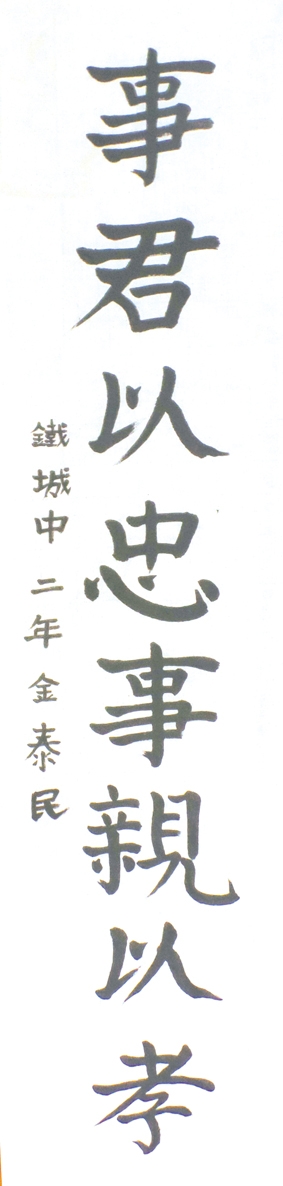 事君以忠事親以孝
鐵城中二年金泰民